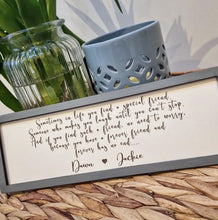 Sometimes in life you find a special friend...
Someone who makes you laugh until you can't stop,
And if you find such a friend, no need to worry,
because you have a forever friend and
forever has no end....
Dawn ♥ Jackie